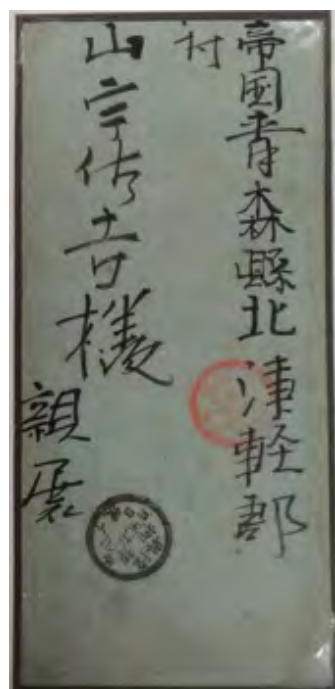 帝国青森縣北津軽郡
村
山宇佐吉様
親展